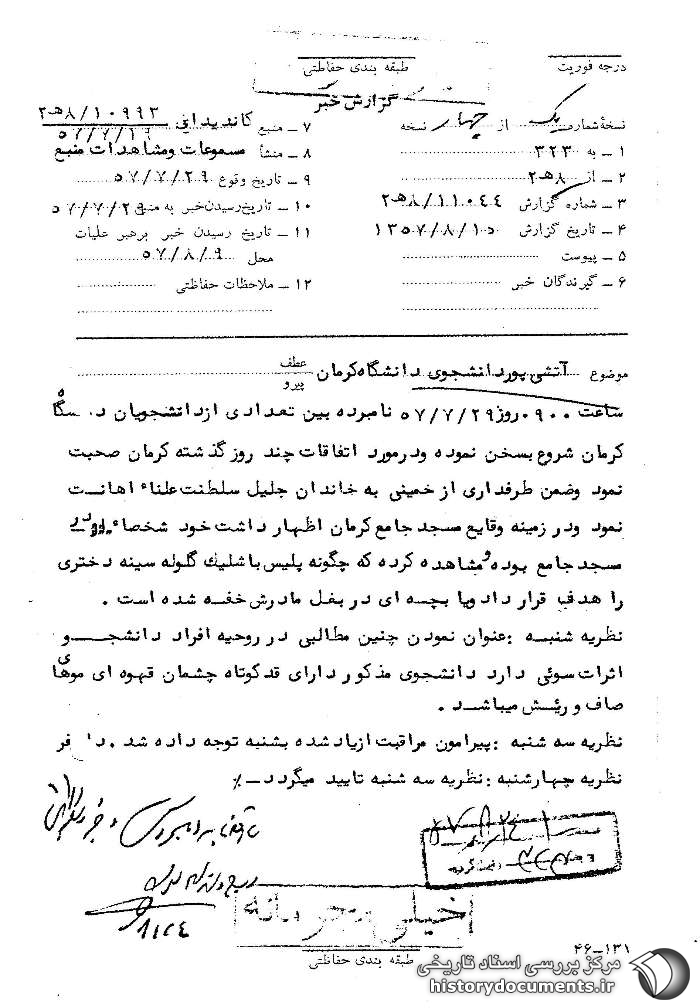 درجه فوریت
طبقه بندی حفاظتی
گزارش خبر
نسخهٔ شماره یک از چهار نسخه
۱ ـ به ۳۲۳
۲ ـ از ۸هـ۲
۳ ـ شماره گزارش ۸/۱۱۰۴۴هـ۲
۴ ـ تاریخ گزارش ۱۳۵۷/۸/۱۰
۵ ـ پیوست
۶ ـ گیرندگان خبر
۷ ـ منبع کاندیدای ۸/۱۰۹۹۳هـ۲
۵۷/۷/۱۹
۸ ـ منشأ مسموعات ومشاهدات منبع
۹ ـ تاریخ وقوع ۵۷/۷/۲۹
۱۰ ـ تاریخ رسیدن خبر به منبع ۵۷/۷/۲۹
۱۱ ـ تاریخ رسیدن خبر برهبر عملیات
محل ۵۷/۸/۹
۱۲ ـ ملاحظات حفاظتی
موضوع آتشی پوردانشجوی دانشگاه کرمان عطف
پیرو
ساعت ۰۹۰۰ روز ۵۷/۷/۲۹ نامبرده بین تعدادی ازدانشجویان
کرمان شروع بسخن نموده ودرمورد اتفاقات چند روز گذشته کرمان صحبت
نمود وضمن طرفداری از خمینی به خاندان جلیل سلطنت علناً اهانت
نمود ودر زمینه وقایع مسجد جامع کرمان اظهار داشت خود شخصاً در
مسجد جامع بوده ومشاهده کرده که چگونه پلیس باشلیک گلوله سینه دختری
را هدف قرار داد ویا بچه ای در بغل مادرش خفه شده است .
نظریه شنبه : عنوان نمودن چنین مطالبی در روحیه افراد دانشجو و
اثرات سوئی دارد دانشجوی مذکور دارای قدکوتاه چشمان قهوه ای موهای
صاف و ریش میباشد .
نظریه سه شنبه : پیرامون مراقبت ازیادشده بشنبه توجه داده شد . دا فر
نظریه چهارشنبه : نظریه سه شنبه تایید میگردد ـ ٪
۸/۲۴
خیلی محرمانه
طبقه بندی حفاظتی
۴۶-۱۳۱
مرکز بررسی اسناد تاریخی
historydocuments.ir